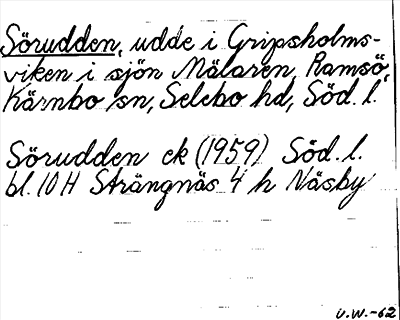 Sörudden, udde i Gripsholms-
viken i sjön Mälaren, Ramsö,
Kärnbo sn, Selebo hd, Söd. l.
Sörudden ek (1959) Söd. l.
bl. 10 H Strängnäs 4 h Näsby
U.W.-62